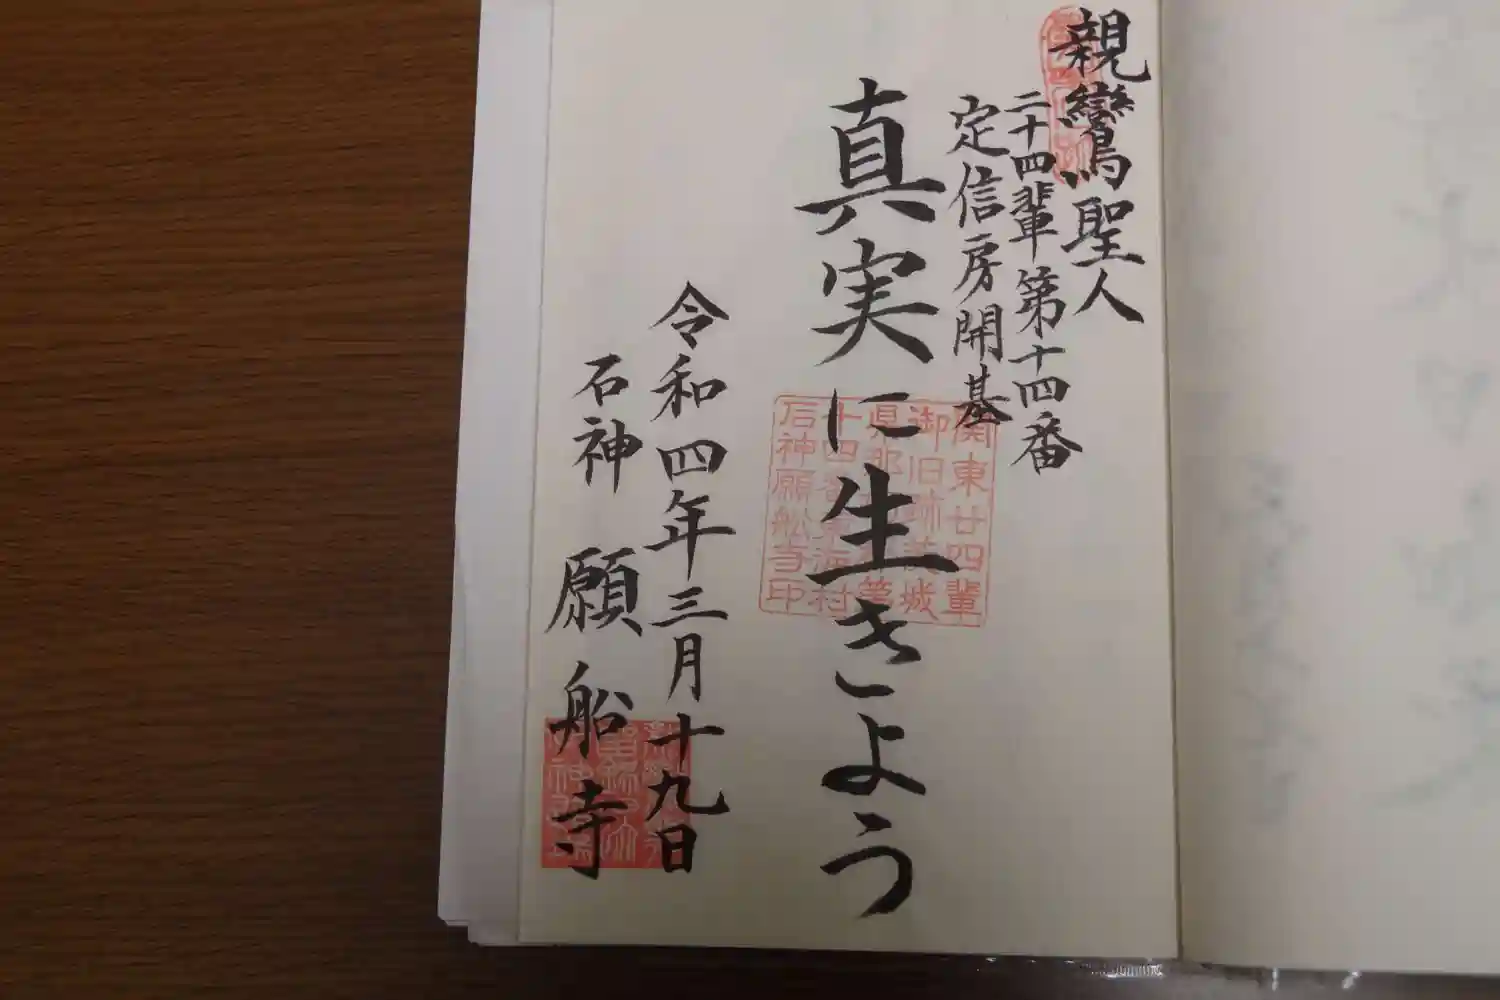 親鸞聖人
二十四輩第十四番
定信房開基
真実に生きよう
令和四年三月十九日
石神 願船寺
関東廿四輩
御旧跡茨城
石神願船寺印